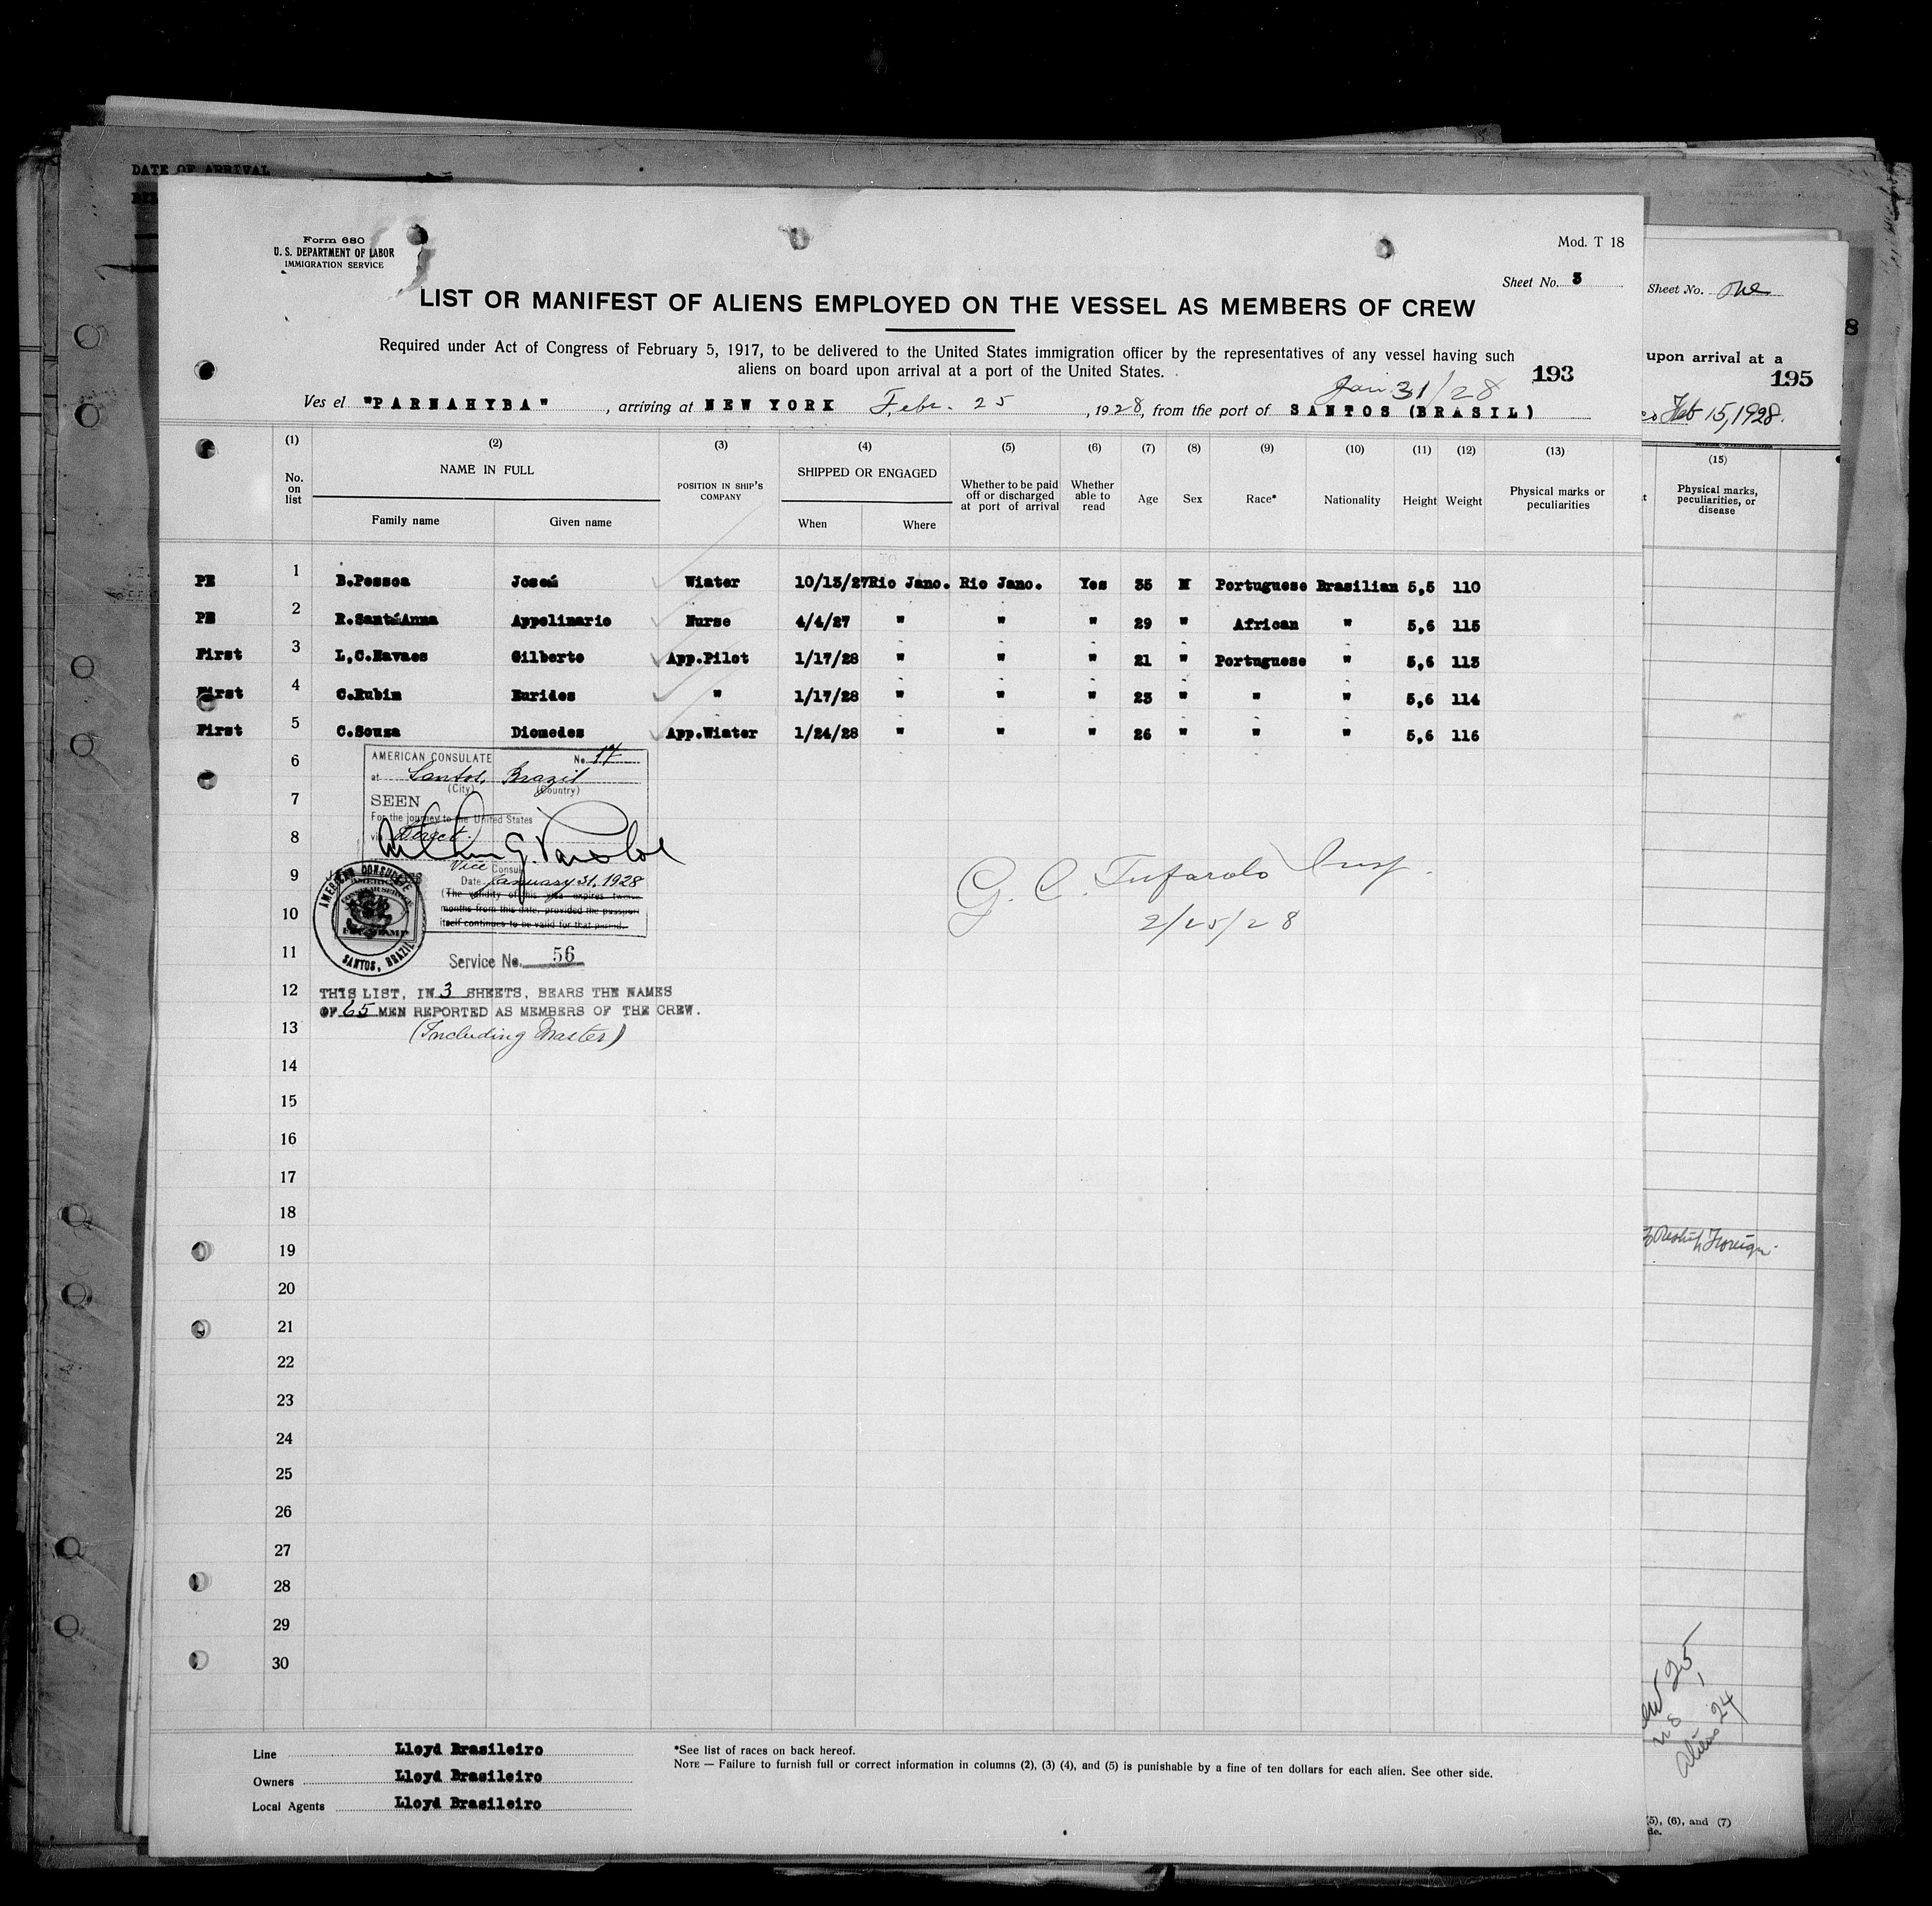 DATE OF ARRIVAL
Form 680
U. S. DEPARTMENT OF LABOR
IMMIGRATION SERVICE
Mod. T 18
Sheet No. 3
LIST OR MANIFEST OF ALIENS EMPLOYED ON THE VESSEL AS MEMBERS OF CREW
Required under Act of Congress of February 5, 1917, to be delivered to the United States immigration officer by the representatives of any vessel having such
aliens on board upon arrival at a port of the United States.
193
Jan 31/28
Ves el "PARNAHYBA", arriving at NEW YORK Febr. 25, 1928, from the port of SANTOS (BRASIL)
(1) (2) (3) (4) (5) (6) (7) (8) (9) (10) (11) (12) (13)
No. on list NAME IN FULL Family name Given name POSITION IN SHIP'S COMPANY SHIPPED OR ENGAGED When Where Whether to be paid off or discharged at port of arrival Whether able to read Age Sex Race* Nationality Height Weight Physical marks or peculiarities
PE 1 B.Pessoa José Wiater 10/13/27 Rio Jano. Rio Jano. Yes 35 M Portuguese Brasilian 5,5 110
PE 2 R.Sant'Anna Appolinario Nurse 4/4/27 " " " 29 " African " 5,6 115
First 3 L,C.Navaes Gilberto App.Pilot 1/17/28 " " " 21 " Portuguese " 5,6 113
First 4 C.Rubim Eurides " 1/17/28 " " " 23 " " " 5,6 114
First 5 C.Souza Diomedes App.Wiater 1/24/28 " " " 26 " " " 5,6 116
6
7
8
9
10
11
12
13
14
15
16
17
18
19
20
21
22
23
24
25
26
27
28
29
30
AMERICAN CONSULATE No. 17
at Santos, Brazil
(City) (Country)
SEEN
For the journey to the United States
via Direct.
Vice Consul
Date January 31, 1928
(The validity of this visa expires twelve
months from this date, provided the passport
itself continues to be valid for that period.
AMERICAN CONSULATE
SANTOS, BRAZIL
Service No. 56
THIS LIST, IN 3 SHEETS, BEARS THE NAMES
OF 65 MEN REPORTED AS MEMBERS OF THE CREW.
(Including Master)
G. C. Tufarolo Insp.
2/25/28
Line Lloyd Brasileiro
Owners Lloyd Brasileiro
Local Agents Lloyd Brasileiro
*See list of races on back hereof.
NOTE — Failure to furnish full or correct information in columns (2), (3) (4), and (5) is punishable by a fine of ten dollars for each alien. See other side.
Sheet No. one
8
upon arrival at a
195
Feb 15, 1928.
(15)
Physical marks, peculiarities, or disease
Foreign
25,
Aliens 24
(5), (6), and (7)
de.